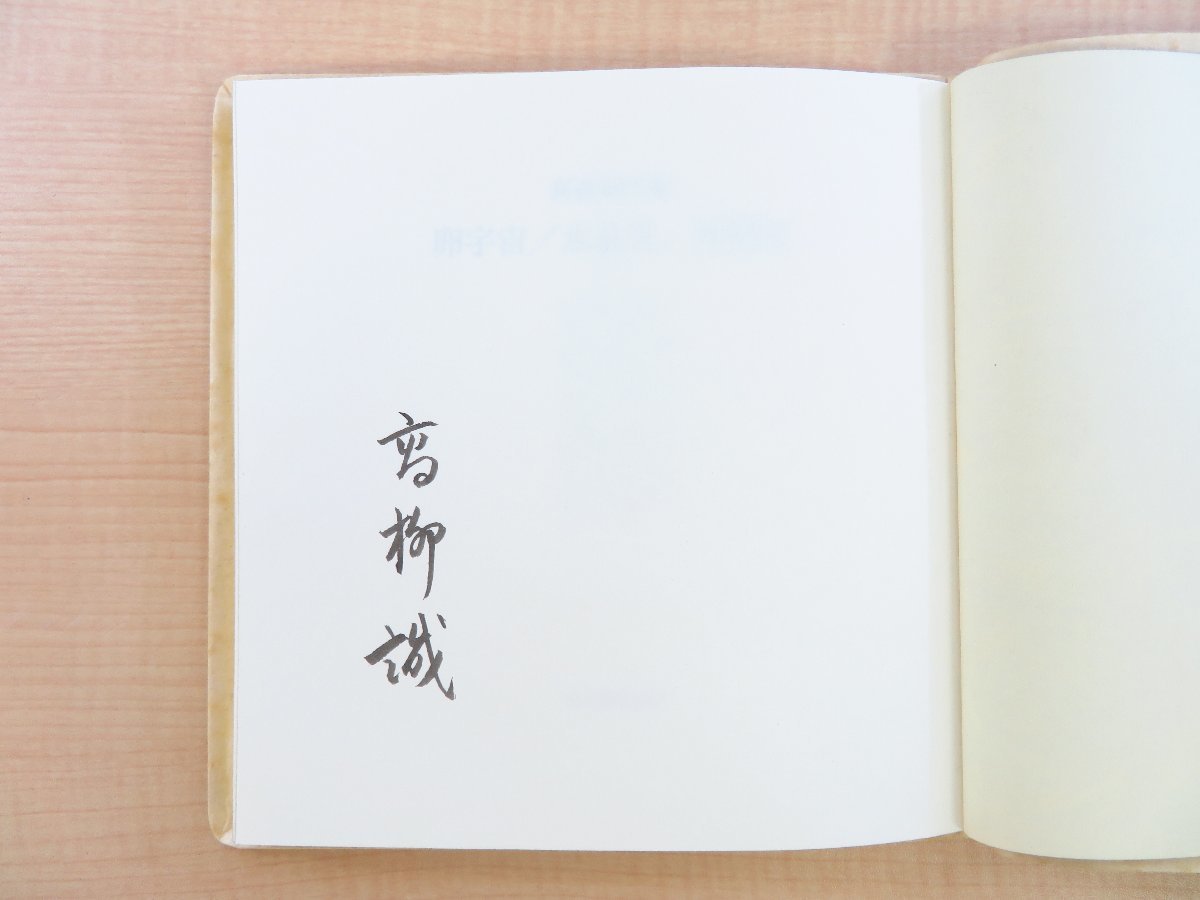 高柳誠